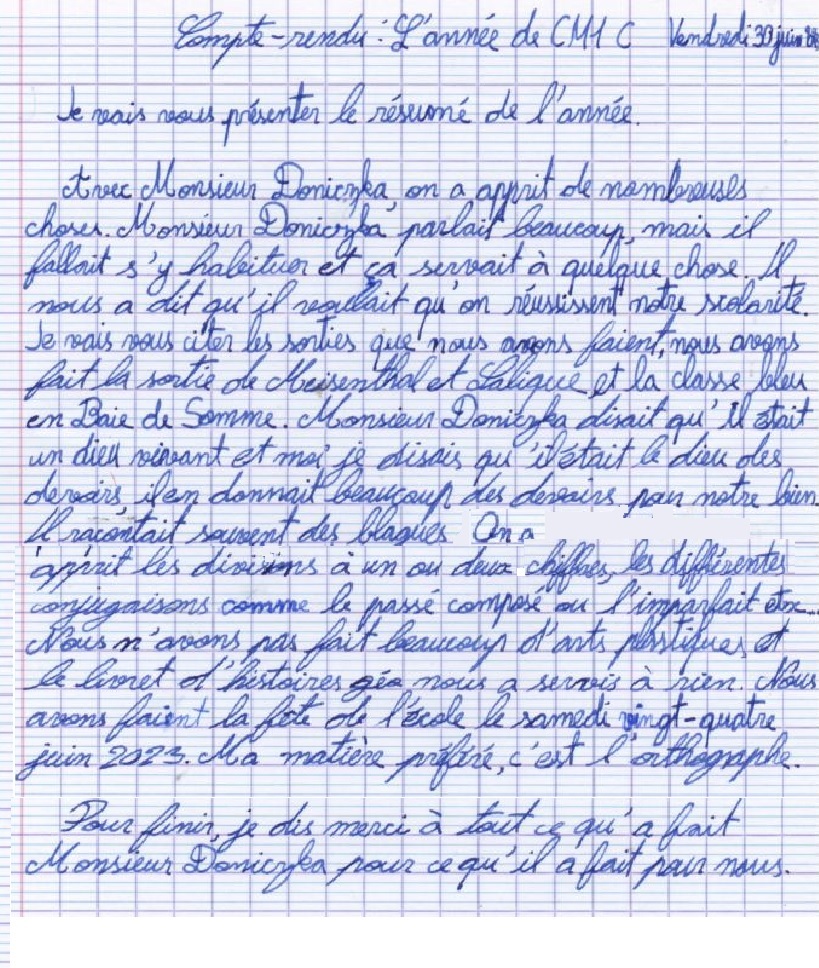 Compte-rendu : L'année de CM1 C Vendredi 30 juin
Je vais vous présenter le résumé de l'année.
Avec Monsieur Doniczka, on a apprit de nombreuses
choses. Monsieur Doniczka parlait beaucoup, mais il
fallait s'y habituer et ça servait à quelque chose. Il
nous a dit qu'il voulait qu'on réussissent notre scolarité.
Je vais vous citer les sorties que nous avons faient, nous avons
fait la sortie de Meisenthal et Lalique et la classe bleu
en Baie de Somme. Monsieur Doniczka disait qu'il était
un dieu vivant et moi je disais qu'il était le dieu des
devoirs, il en donnait beaucoup des devoirs pour notre bien.
Il racontait souvent des blagues. On a
apprit les divisions à un ou deux chiffres, les différentes
conjugaisons comme le passé composé ou l'imparfait etc...
Nous n'avons pas fait beaucoup d'arts plastiques, et
le livret d'histoires géo nous a servis à rien. Nous
avons faient la fête de l'école le samedi vingt-quatre
juin 2023. Ma matière préféré, c'est l'orthographe.
Pour finir, je dis merci à tout ce qu'a fait
Monsieur Doniczka pour ce qu'il a fait pour nous.